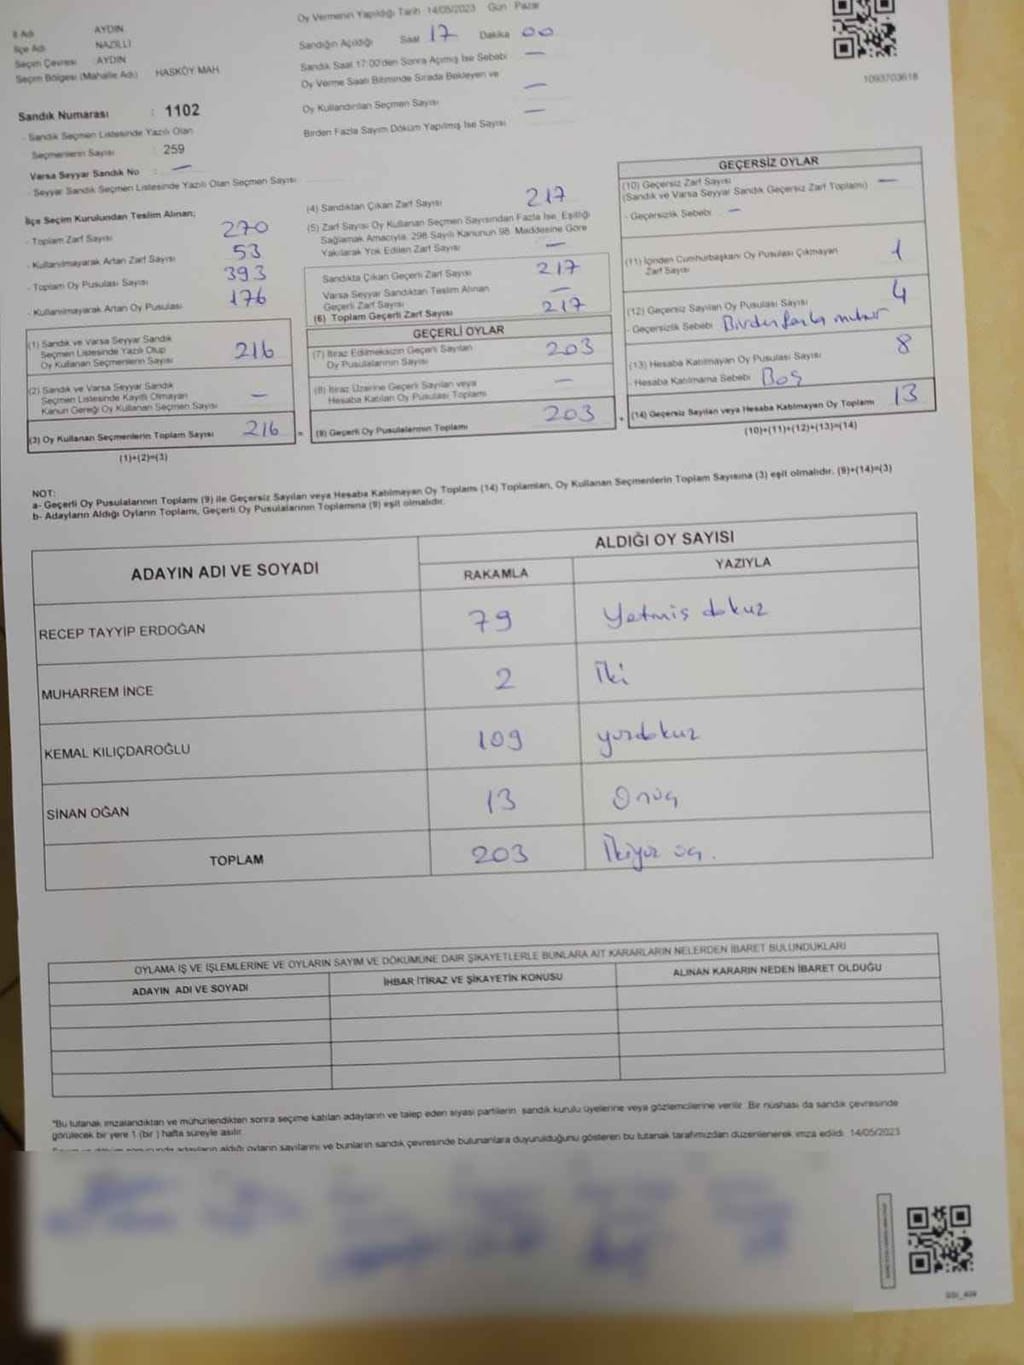 İl Adı AYDIN
İlçe Adı NAZİLLİ
Seçim Çevresi AYDIN
Seçim Bölgesi (Mahalle Adı) HASKÖY MAH.
Sandık Numarası : 1102
- Sandık Seçmen Listesinde Yazılı Olan
Seçmenlerin Sayısı : 259
Varsa Seyyar Sandık No : —
- Seyyar Sandık Seçmen Listesinde Yazılı Olan Seçmen Sayısı
Oy Vermenin Yapıldığı Tarih 14/05/2023 Gün Pazar
Sandığın Açıldığı Saat 17 Dakika 00
Sandık Saat 17:00'den Sonra Açılmış İse Sebebi —
Oy Verme Saati Bitiminde Sırada Bekleyen ve
Oy Kullandırılan Seçmen Sayısı —
Birden Fazla Sayım Döküm Yapılmış İse Sayısı —
1093703618
İlçe Seçim Kurulundan Teslim Alınan;
- Toplam Zarf Sayısı 270
- Kullanılmayarak Artan Zarf Sayısı 53
- Toplam Oy Pusulası Sayısı 393
- Kullanılmayarak Artan Oy Pusulası 176
(1) Sandık ve Varsa Seyyar Sandık
Seçmen Listesinde Yazılı Olup
Oy Kullanan Seçmenlerin Sayısı 216
(2) Sandık ve Varsa Seyyar Sandık
Seçmen Listesinde Kayıtlı Olmayan
Kanun Gereği Oy Kullanan Seçmen Sayısı —
(3) Oy Kullanan Seçmenlerin Toplam Sayısı 216 =
(1)+(2)=(3)
(4) Sandıktan Çıkan Zarf Sayısı 217
(5) Zarf Sayısı Oy Kullanan Seçmen Sayısından Fazla İse, Eşitliği
Sağlamak Amacıyla, 298 Sayılı Kanunun 98. Maddesine Göre
Yakılarak Yok Edilen Zarf Sayısı —
Sandıkta Çıkan Geçerli Zarf Sayısı 217
Varsa Seyyar Sandıktan Teslim Alınan
Geçerli Zarf Sayısı —
(6) Toplam Geçerli Zarf Sayısı 217
GEÇERLİ OYLAR
(7) İtiraz Edilmeksizin Geçerli Sayılan
Oy Pusulalarının Sayısı 203
(8) İtiraz Üzerine Geçerli Sayılan veya
Hesaba Katılan Oy Pusulası Toplamı —
(9) Geçerli Oy Pusulalarının Toplamı 203 +
GEÇERSİZ OYLAR
(10) Geçersiz Zarf Sayısı —
(Sandık ve Varsa Seyyar Sandık Geçersiz Zarf Toplamı)
- Geçersizlik Sebebi —
(11) İçinden Cumhurbaşkanı Oy Pusulası Çıkmayan
Zarf Sayısı 1
(12) Geçersiz Sayılan Oy Pusulası Sayısı 4
- Geçersizlik Sebebi Birden fazla mühür
(13) Hesaba Katılmayan Oy Pusulası Sayısı 8
- Hesaba Katılmama Sebebi Boş
(14) Geçersiz Sayılan veya Hesaba Katılmayan Oy Toplamı 13
(10)+(11)+(12)+(13)=(14)
NOT:
a- Geçerli Oy Pusulalarının Toplamı (9) ile Geçersiz Sayılan veya Hesaba Katılmayan Oy Toplamı (14) Toplamları, Oy Kullanan Seçmenlerin Toplam Sayısına (3) eşit olmalıdır. (9)+(14)=(3)
b- Adayların Aldığı Oyların Toplamı, Geçerli Oy Pusulalarının Toplamına (9) eşit olmalıdır.
ADAYIN ADI VE SOYADI
ALDIĞI OY SAYISI
RAKAMLA YAZIYLA
RECEP TAYYİP ERDOĞAN 79 Yetmiş dokuz
MUHARREM İNCE 2 İki
KEMAL KILIÇDAROĞLU 109 yüzdokuz
SİNAN OĞAN 13 Onüç
TOPLAM 203 İkiyüz üç.
OYLAMA İŞ VE İŞLEMLERİNE VE OYLARIN SAYIM VE DÖKÜMÜNE DAİR ŞİKAYETLERLE BUNLARA AİT KARARLARIN NELERDEN İBARET BULUNDUKLARI
ADAYIN ADI VE SOYADI İHBAR İTİRAZ VE ŞİKAYETİN KONUSU ALINAN KARARIN NEDEN İBARET OLDUĞU
"Bu tutanak imzalandıktan ve mühürlendikten sonra seçime katılan adayların ve talep eden siyasi partilerin sandık kurulu üyelerine veya gözlemcilerine verilir. Bir nüshası da sandık çevresinde
görülecek bir yere 1 (bir) hafta süreyle asılır.
adayların aldığı oyların sayılarını ve bunların sandık çevresinde bulunanlara duyurulduğunu gösteren bu tutanak tarafımızdan düzenlenerek imza edildi. 14/05/2023